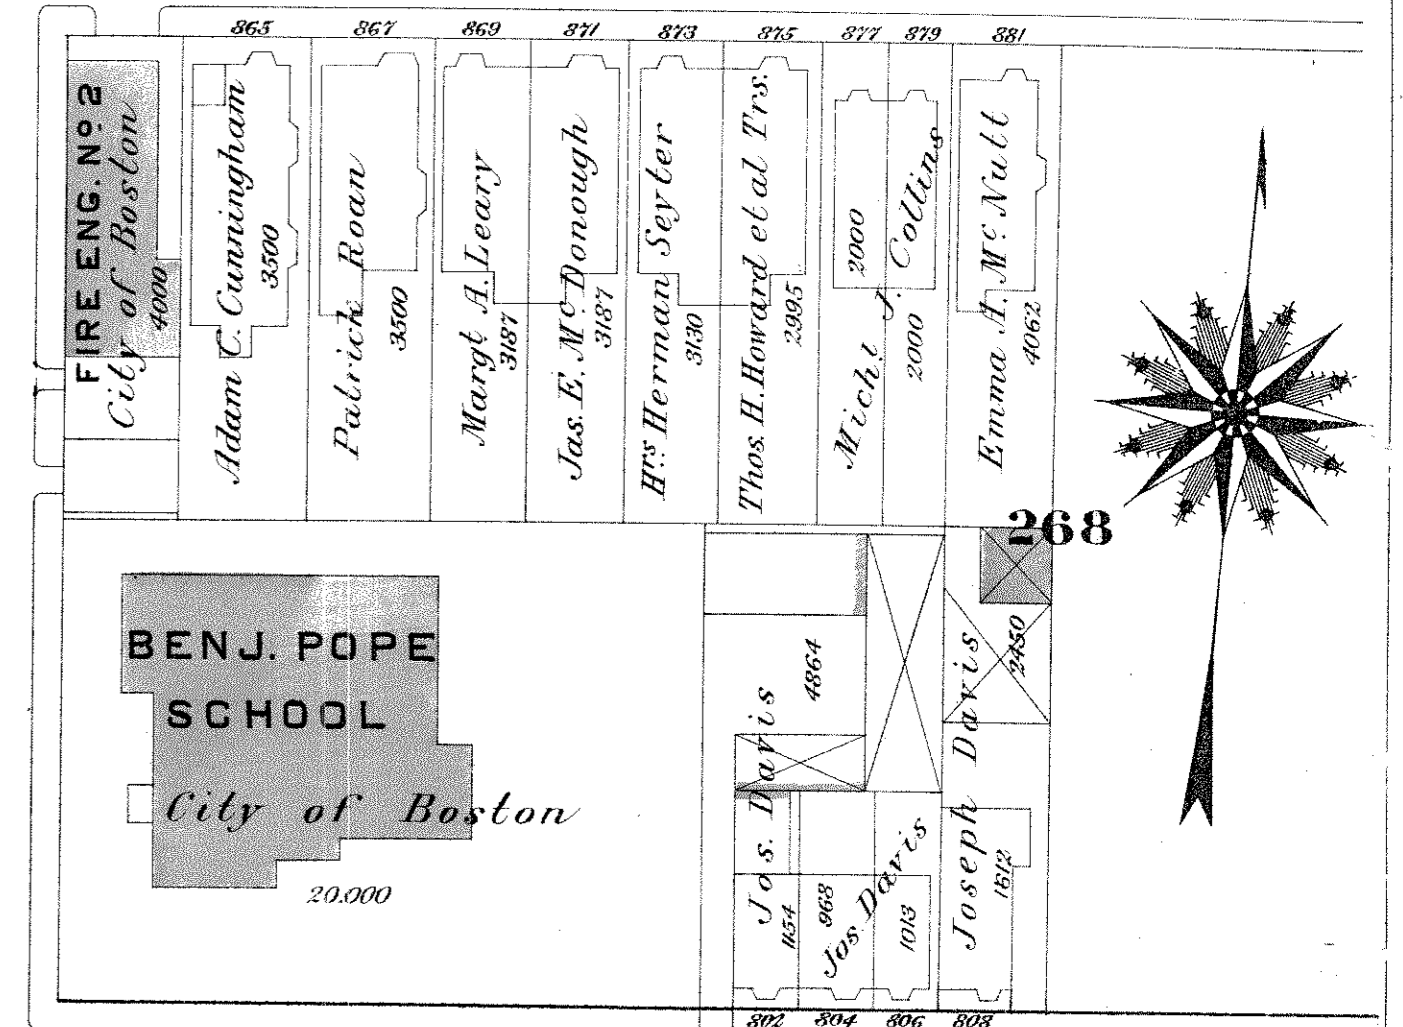 865 867 869 871 873 875 877 879 881
FIRE ENG. No 2
City of Boston
4000
Adam C. Cunningham
3500
Patrick Roan
3500
Margt A. Leary
3187
Jas. E. Mc Donough
3187
Hrs Herman Seyter
3130
Thos. H. Howard et al Trs.
2995
Mich. l J. Collins
2000
2000
Emma A. Mc Nutt
4062
268
BENJ. POPE
SCHOOL
City of Boston
20.000
4864
Jos. Davis
1154
968
Jos Davis
1013
Joseph Davis
2450
1612
802 804 806 808